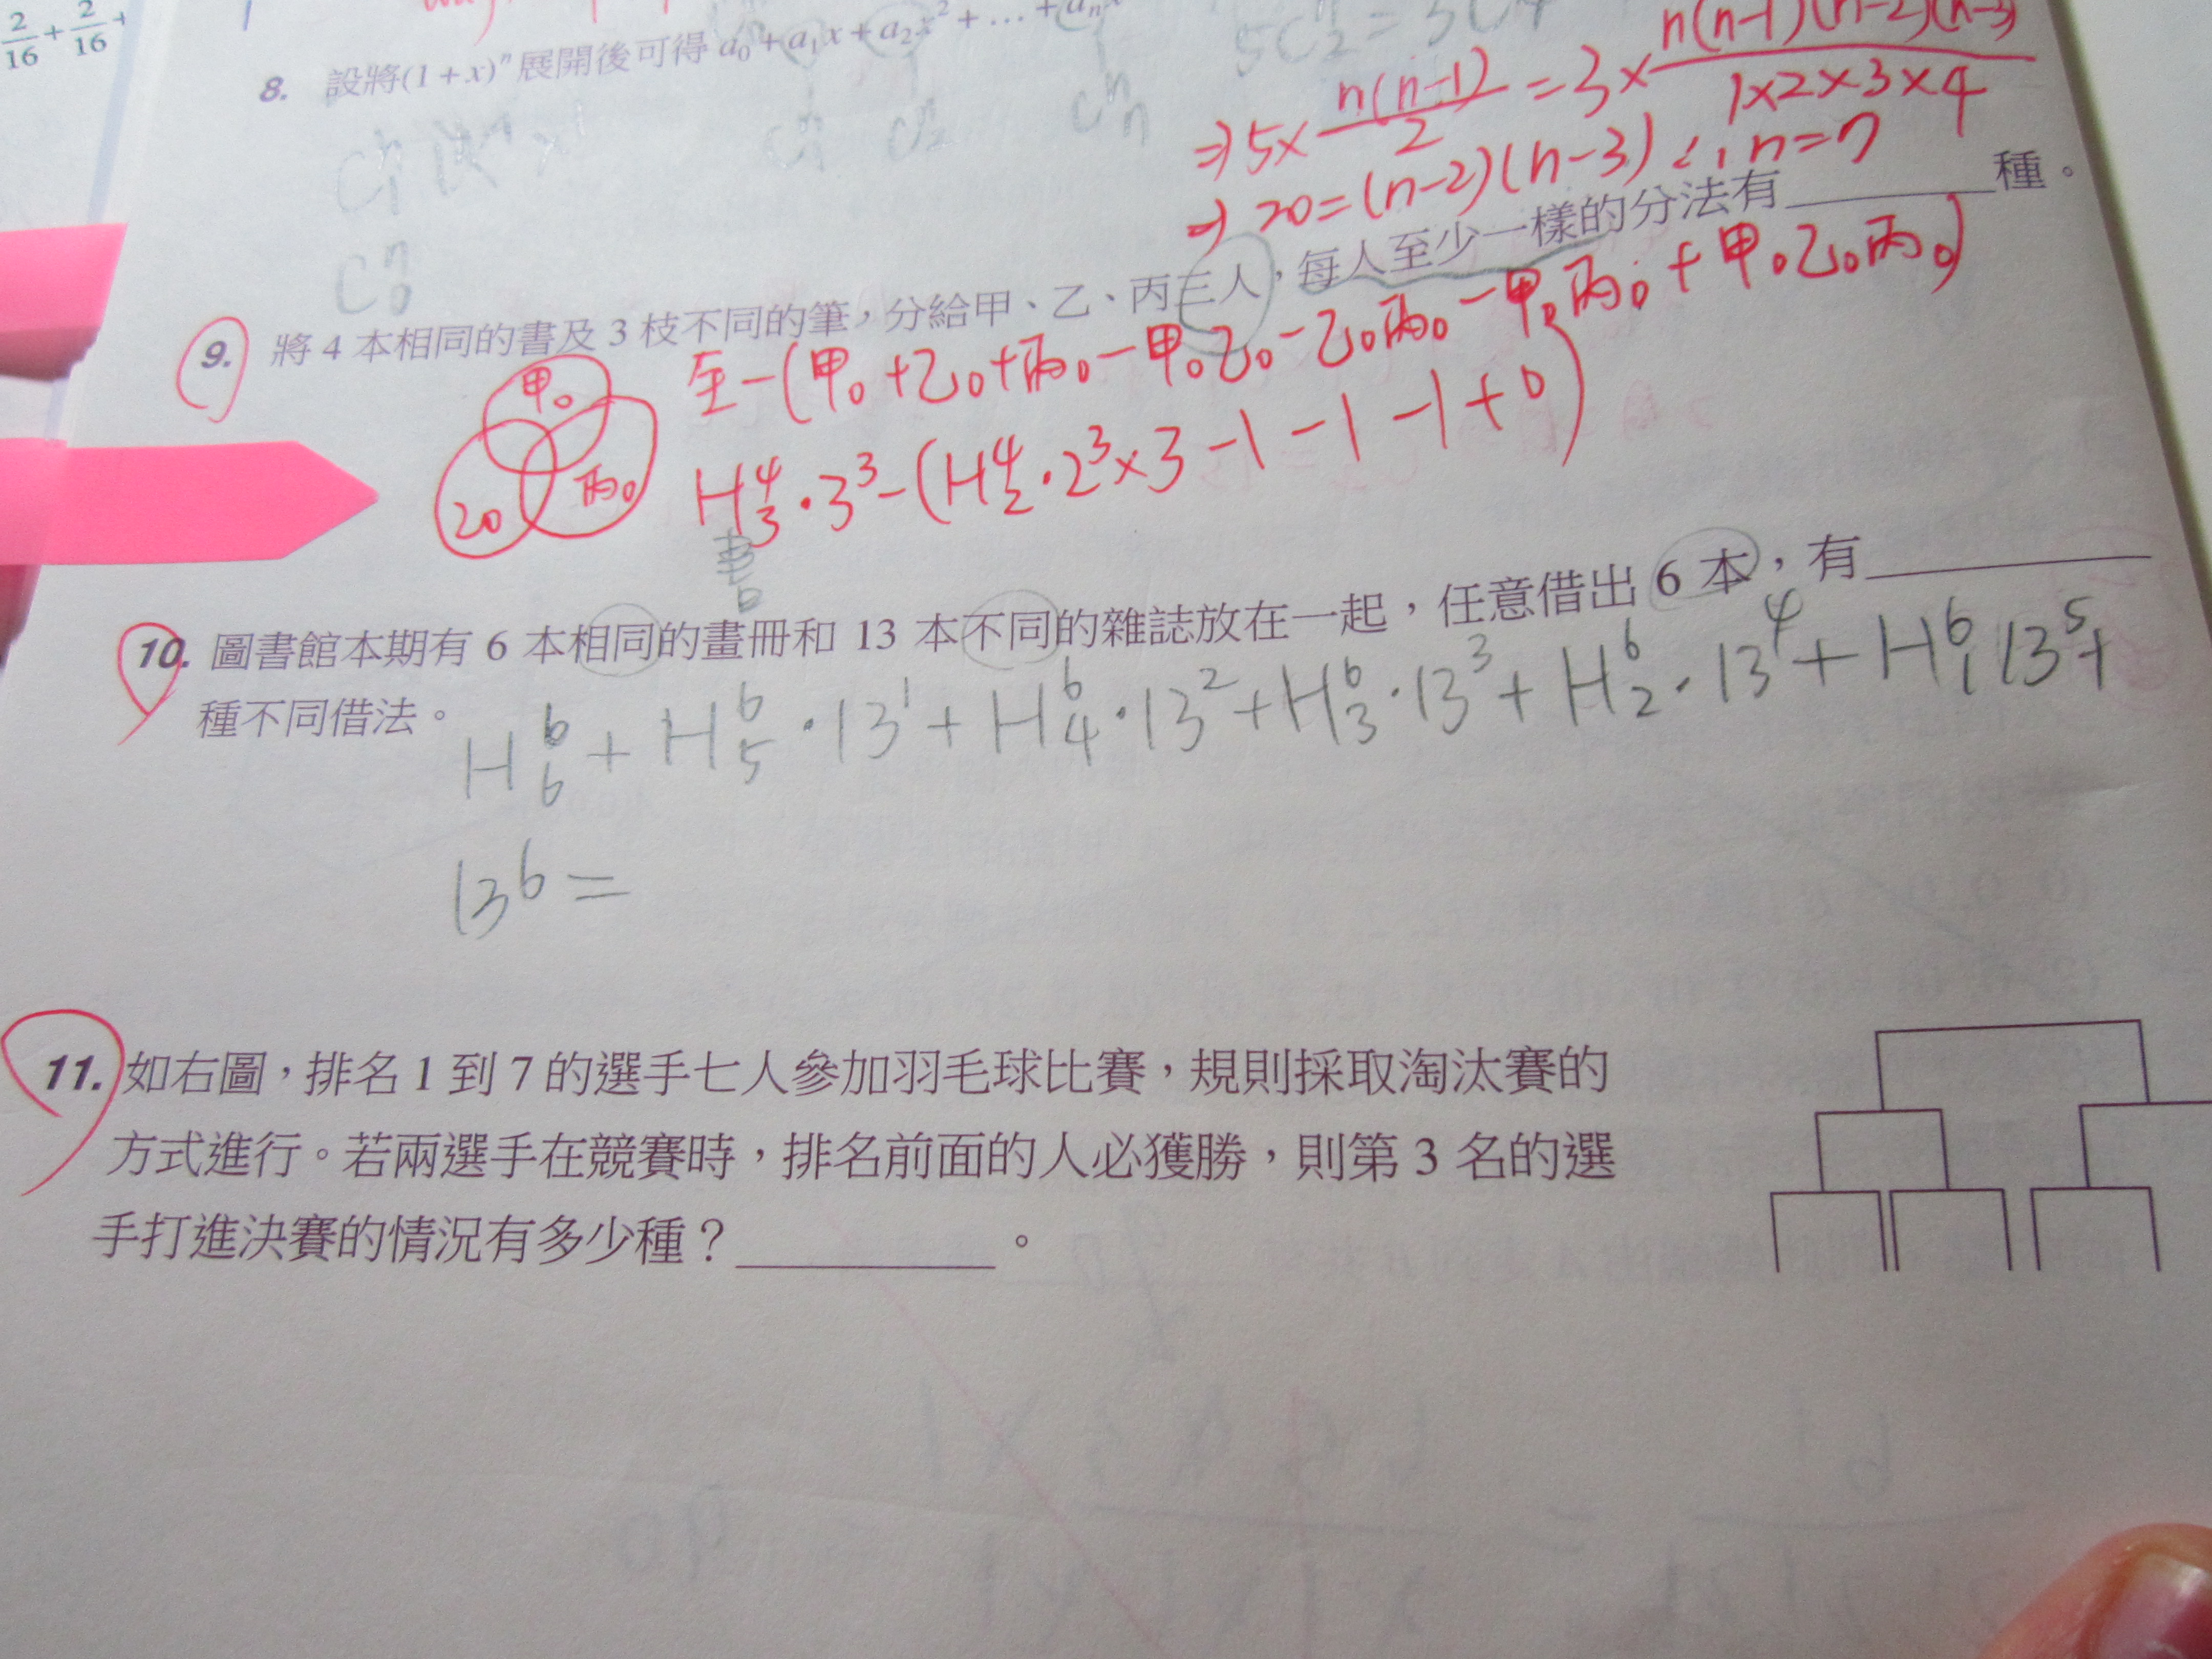 2/16 + 2/16 +
8. 設將(1+x)ⁿ展開後可得 a₀+a₁x+a₂x²+…+aₙx
5C₂ⁿ=3C
⇒5×n(n-1)/2=3×n(n-1)(n-2)(n-3)/1×2×3×4
⇒20=(n-2)(n-3) ∴n=7
C₁ⁿ
C₁ⁿ C₂ⁿ Cₙⁿ
C₀ⁿ
9. 將 4 本相同的書及 3 枝不同的筆，分給甲、乙、丙三人，每人至少一樣的分法有______種。
甲₀
乙0
丙₀
全-(甲₀+乙₀+丙₀-甲₀乙₀-乙₀丙₀-甲₀丙₀+甲₀乙₀丙₀)
H₃⁴·3³-(H₂⁴·2³×3-1-1-1+0)
書
10. 圖書館本期有 6 本相同的畫冊和 13 本不同的雜誌放在一起，任意借出 6 本，有______
種不同借法。
H₆⁶+H₅⁶·13¹+H₄⁶·13²+H₃⁶·13³+H₂⁶·13⁴+H₁⁶13⁵+
13⁶=
11. 如右圖，排名 1 到 7 的選手七人參加羽毛球比賽，規則採取淘汰賽的
方式進行。若兩選手在競賽時，排名前面的人必獲勝，則第 3 名的選
手打進決賽的情況有多少種？______。